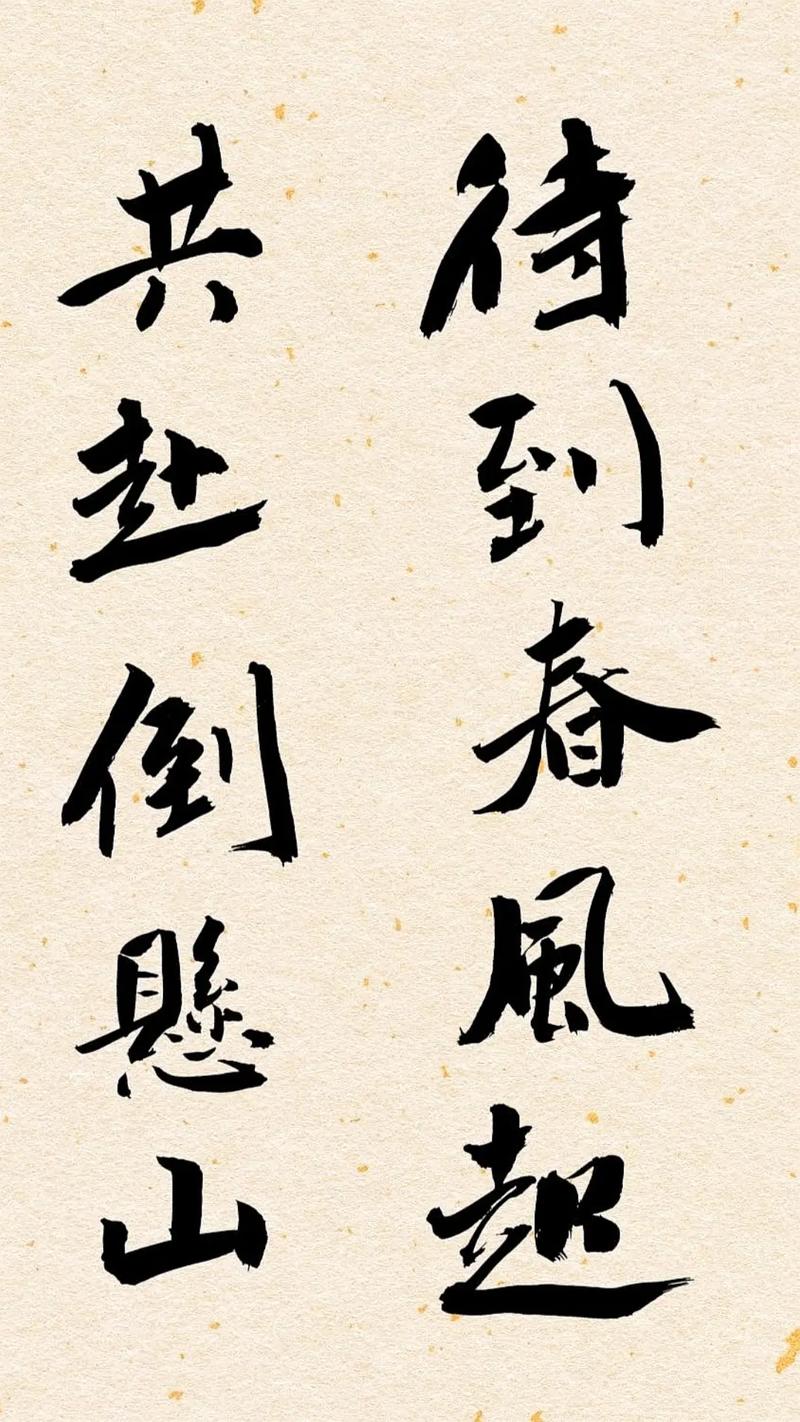 待到春風起
共赴倒懸山